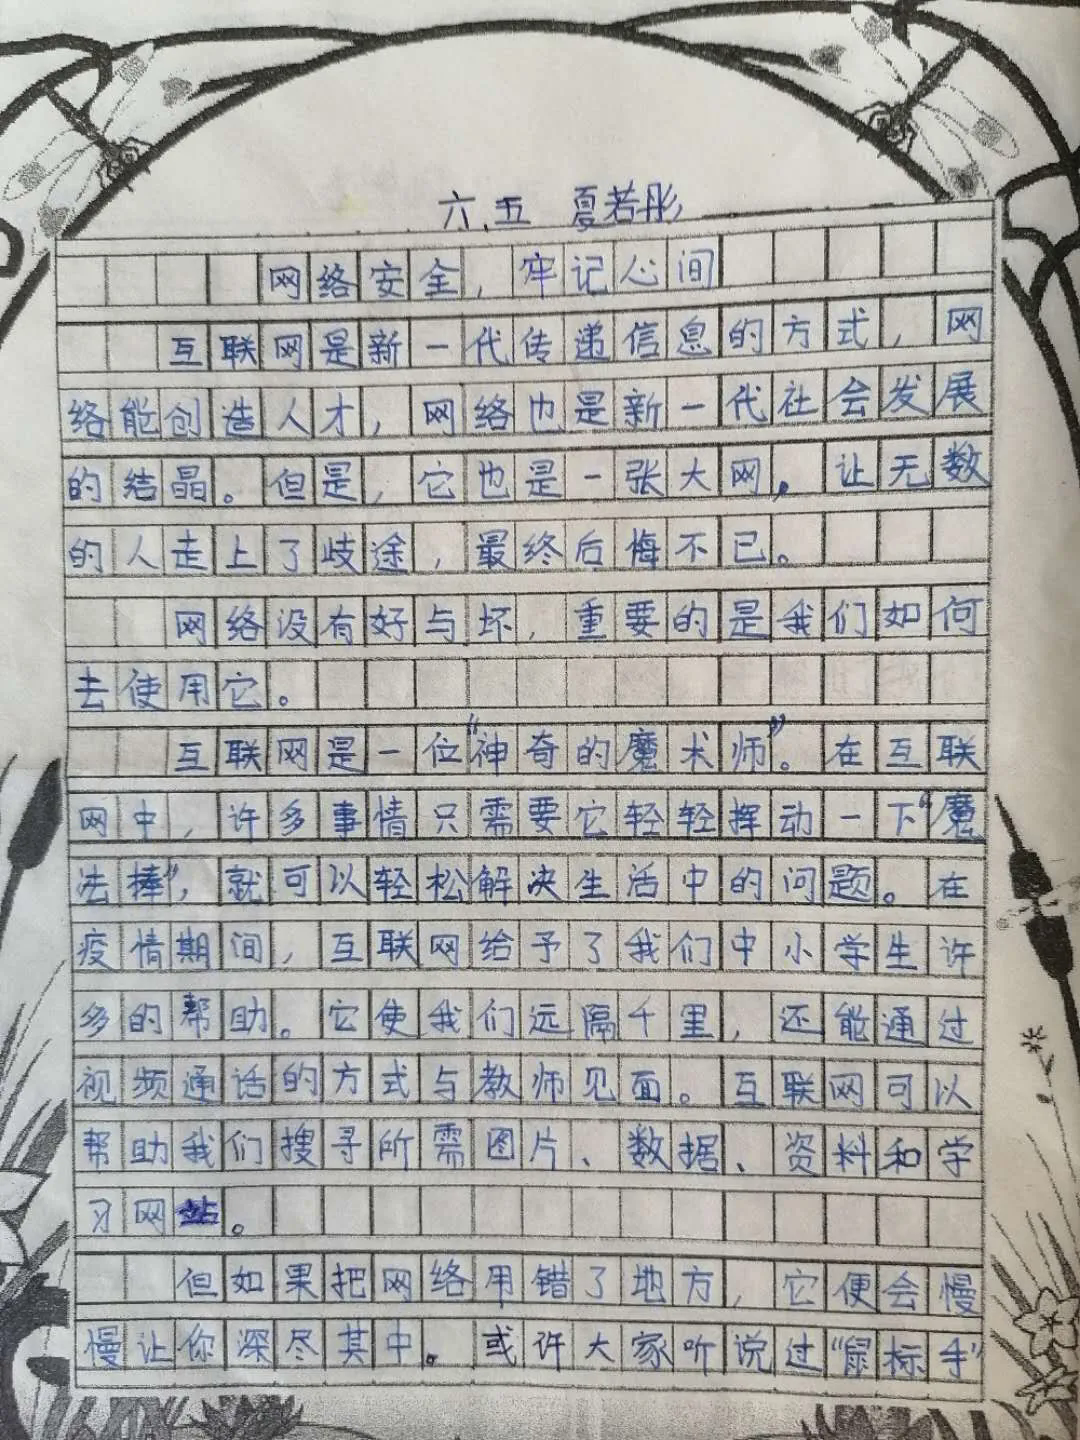 六.五 夏若彤
网络安全，牢记心间
互联网是新一代传递信息的方式，网
络能创造人才，网络也是新一代社会发展
的结晶。但是，它也是一张大网，让无数
的人走上了歧途，最终后悔不已。
网络没有好与坏，重要的是我们如何
去使用它。
互联网是一位“神奇的魔术师”。在互联
网中，许多事情只需要它轻轻挥动一下“魔
法棒”，就可以轻松解决生活中的问题。在
疫情期间，互联网给予了我们中小学生许
多的帮助。它使我们远隔千里，还能通过
视频通话的方式与教师见面。互联网可以
帮助我们搜寻所需图片、数据、资料和学
习网站。
但如果把网络用错了地方，它便会慢
慢让你深尽其中。或许大家听说过“鼠标手”